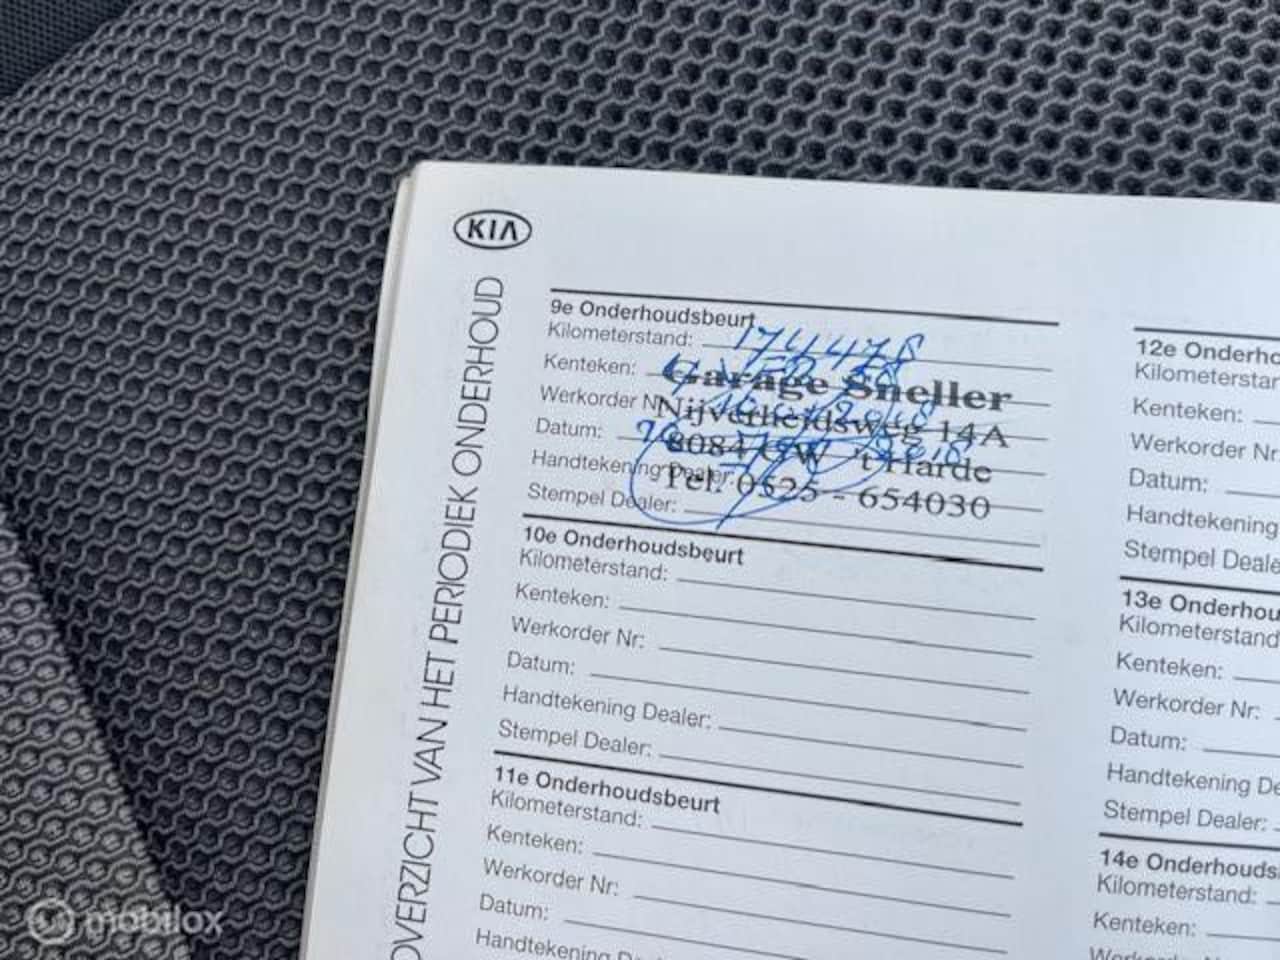 KIA
OVERZICHT VAN HET PERIODIEK ONDERHOUD
9e Onderhoudsbeurt
Kilometerstand: 174478
Kenteken:
Garage Sneller
Werkorder N
Nijverheidsweg 14A
Datum:
8084 GW 't Harde
Handtekening Dealer:
Tel. 0525 - 654030
Stempel Dealer:
10e Onderhoudsbeurt
Kilometerstand:
Kenteken:
Werkorder Nr:
Datum:
Handtekening Dealer:
Stempel Dealer:
11e Onderhoudsbeurt
Kilometerstand:
Kenteken:
Werkorder Nr:
Datum:
Handtekening
12e Onderho
Kilometerstan
Kenteken:
Werkorder Nr:
Datum:
Handtekening
Stempel Deale
13e Onderhou
Kilometerstand
Kenteken:
Werkorder Nr:
Datum:
Handtekening De
Stempel Dealer:
14e Onderhouds
Kilometerstand:
Kenteken:
mobilox